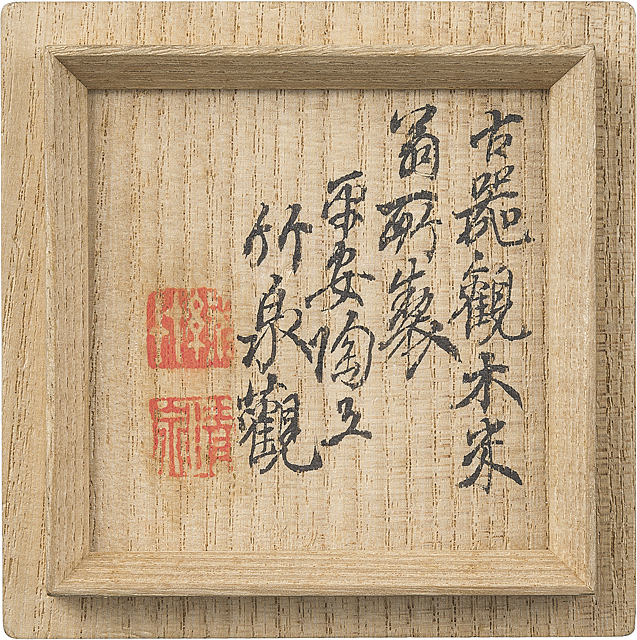 古器観木米
翁所製
平安陶工
竹泉觀